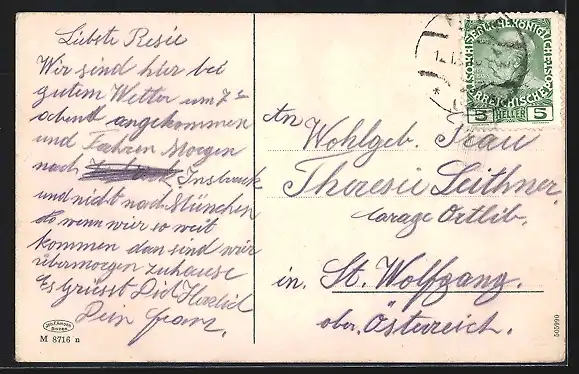 Liebste Resie
Wir sind hier bei
gutem Wetter um 7
abend angekommen
und Fahren Morgen
nach Insbruck
und nicht nach München
da wenn wir so weit
kommen dan sind wir
übermorgen zuhause
Es grüsst Dich Herzlich
Dein Franz.
M 8716 n
An
Wohlgeb. Frau
Theresie Leithner
Garage Ortlib.
in. St. Wolfgang.
ober. Österreich.
5 HELLER 5
505990